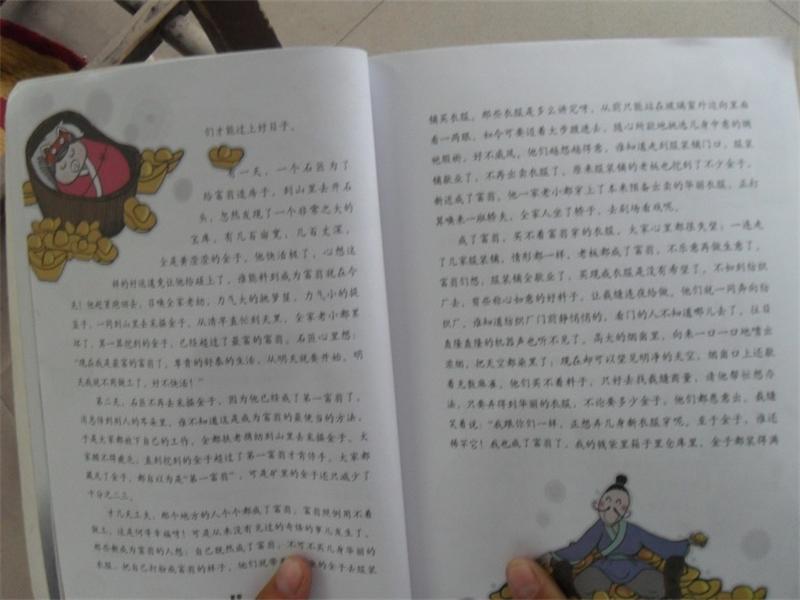 们才能过上好日子。
有一天，一个石匠为了
给富翁造房子，到山里去开石
头，忽然发现了一个非常之大的
宝库，有几百亩宽，几百丈深，
全是黄澄澄的金子。他快活极了，心想这
样的好运道竟让他给碰上了，谁能料到成为富翁就在今
天！他赶紧跑回去，召唤全家老幼，力气大的挑箩筐，力气小的提
篮子，一同到山里去采掘金子。从清早直忙到天黑，全家老小都累
坏了，算一算挖到的金子，已经超过了最富的富翁。石匠心里想：
“现在我是最富的富翁了，尊贵的舒泰的生活，从明天就要开始。明
天我就不用做工了，好不快活！”
第二天，石匠不再去采掘金子，因为他已经成了第一富翁了。
消息传到别人的耳朵里，谁不知道这是成为富翁的最便当的方法，
于是大家都放下自己的工作，全都扶老携幼到山里去采掘金子。大
家顾不得疲乏，直到挖到的金子超过了第一富翁才肯停手。大家都
藏足了金子，都自以为是“第一富翁”，可是矿里的金子还只减少了
十分之二三。
才几天工夫，那个地方的人个个都成了富翁，富翁照例用不着
做工，这是何等幸福呀！可是从来没有见过的奇怪的事儿发生了。
那些新成为富翁的人想：自己既然成了富翁，不可不买几身华丽的
衣服，把自己打扮成富翁的样子。他们就带着 的金子去服装
铺买衣服。那些衣服是多么讲究呀，从前只能站在玻璃窗外边向里面
看一两眼，如今可要迈着大步踱进去，随心所欲地挑选几身中意的绸
袍缎褂，好不威风。他们越想越得意，谁知道走到服装铺门口，服装
铺歇业了，不再出卖衣服了。原来服装铺的老板也挖到了不少金子，
新近成了富翁，他一家老小都穿上了本来预备出卖的华丽衣服，正打
算唤来一班轿夫，全家人坐了轿子，去剧场看戏呢。
成了富翁，买不着富翁穿的衣服，大家心里都很失望；一连走
了几家服装铺，情形都一样，老板都成了富翁，不乐意再做生意了。
富翁们想，服装铺全歇业了，买现成衣服是没有希望了，不如到纺织
厂去，有些称心如意的好料子，让裁缝连夜给做。他们就一同奔向纺
织厂。谁知道纺织厂门前静悄悄的，看门的人不知道哪儿去了，往日
轰隆轰隆的机器声也听不见了。高大的烟囱里，向来一口一口地喷出
浓烟，把天空都染黑了；现在却可以望见明净的天空，烟囱口上还歇
着无数麻雀。他们买不着料子，只好去找裁缝商量，请他帮忙想办
法，只要弄得到华丽的衣服，不论要多少金子，他们都愿意出。裁缝
笑着说：“我跟你们一样，正想弄几身新衣服穿呢。至于金子，谁还
稀罕它！我也成了富翁了，我的钱柴里箱子里仓库里，金子都装得满